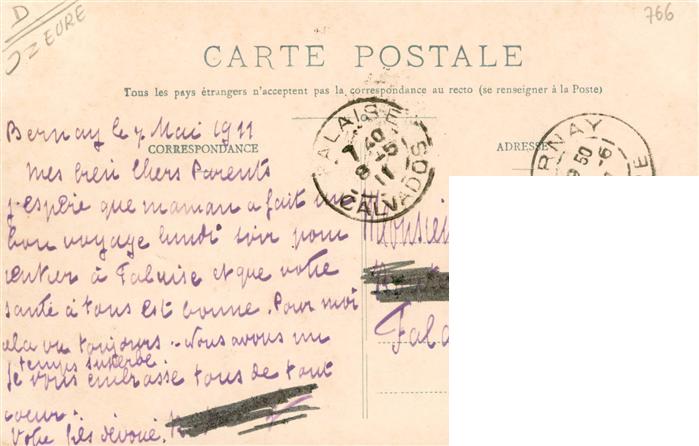 D
27 EURE
766
CARTE POSTALE
Tous les pays étrangers n'acceptent pas la correspondance au recto (se renseigner à la Poste)
CORRESPONDANCE
ADRESSE
FALAISE
7 40
8 -5
11
CALVADOS
RNAY
50
Bernay le 7 Mai 1911
Mes bien Chers Parents
J'espère que maman a fait un
bon voyage lundi soir pour
rentrer à Falaise et que votre
santé à tous est bonne. Pour moi
cela va toujours. Nous avons un
temps superbe.
Je vous embrasse tous de tout
coeur.
Votre fils dévoué.
Monsie
Fala